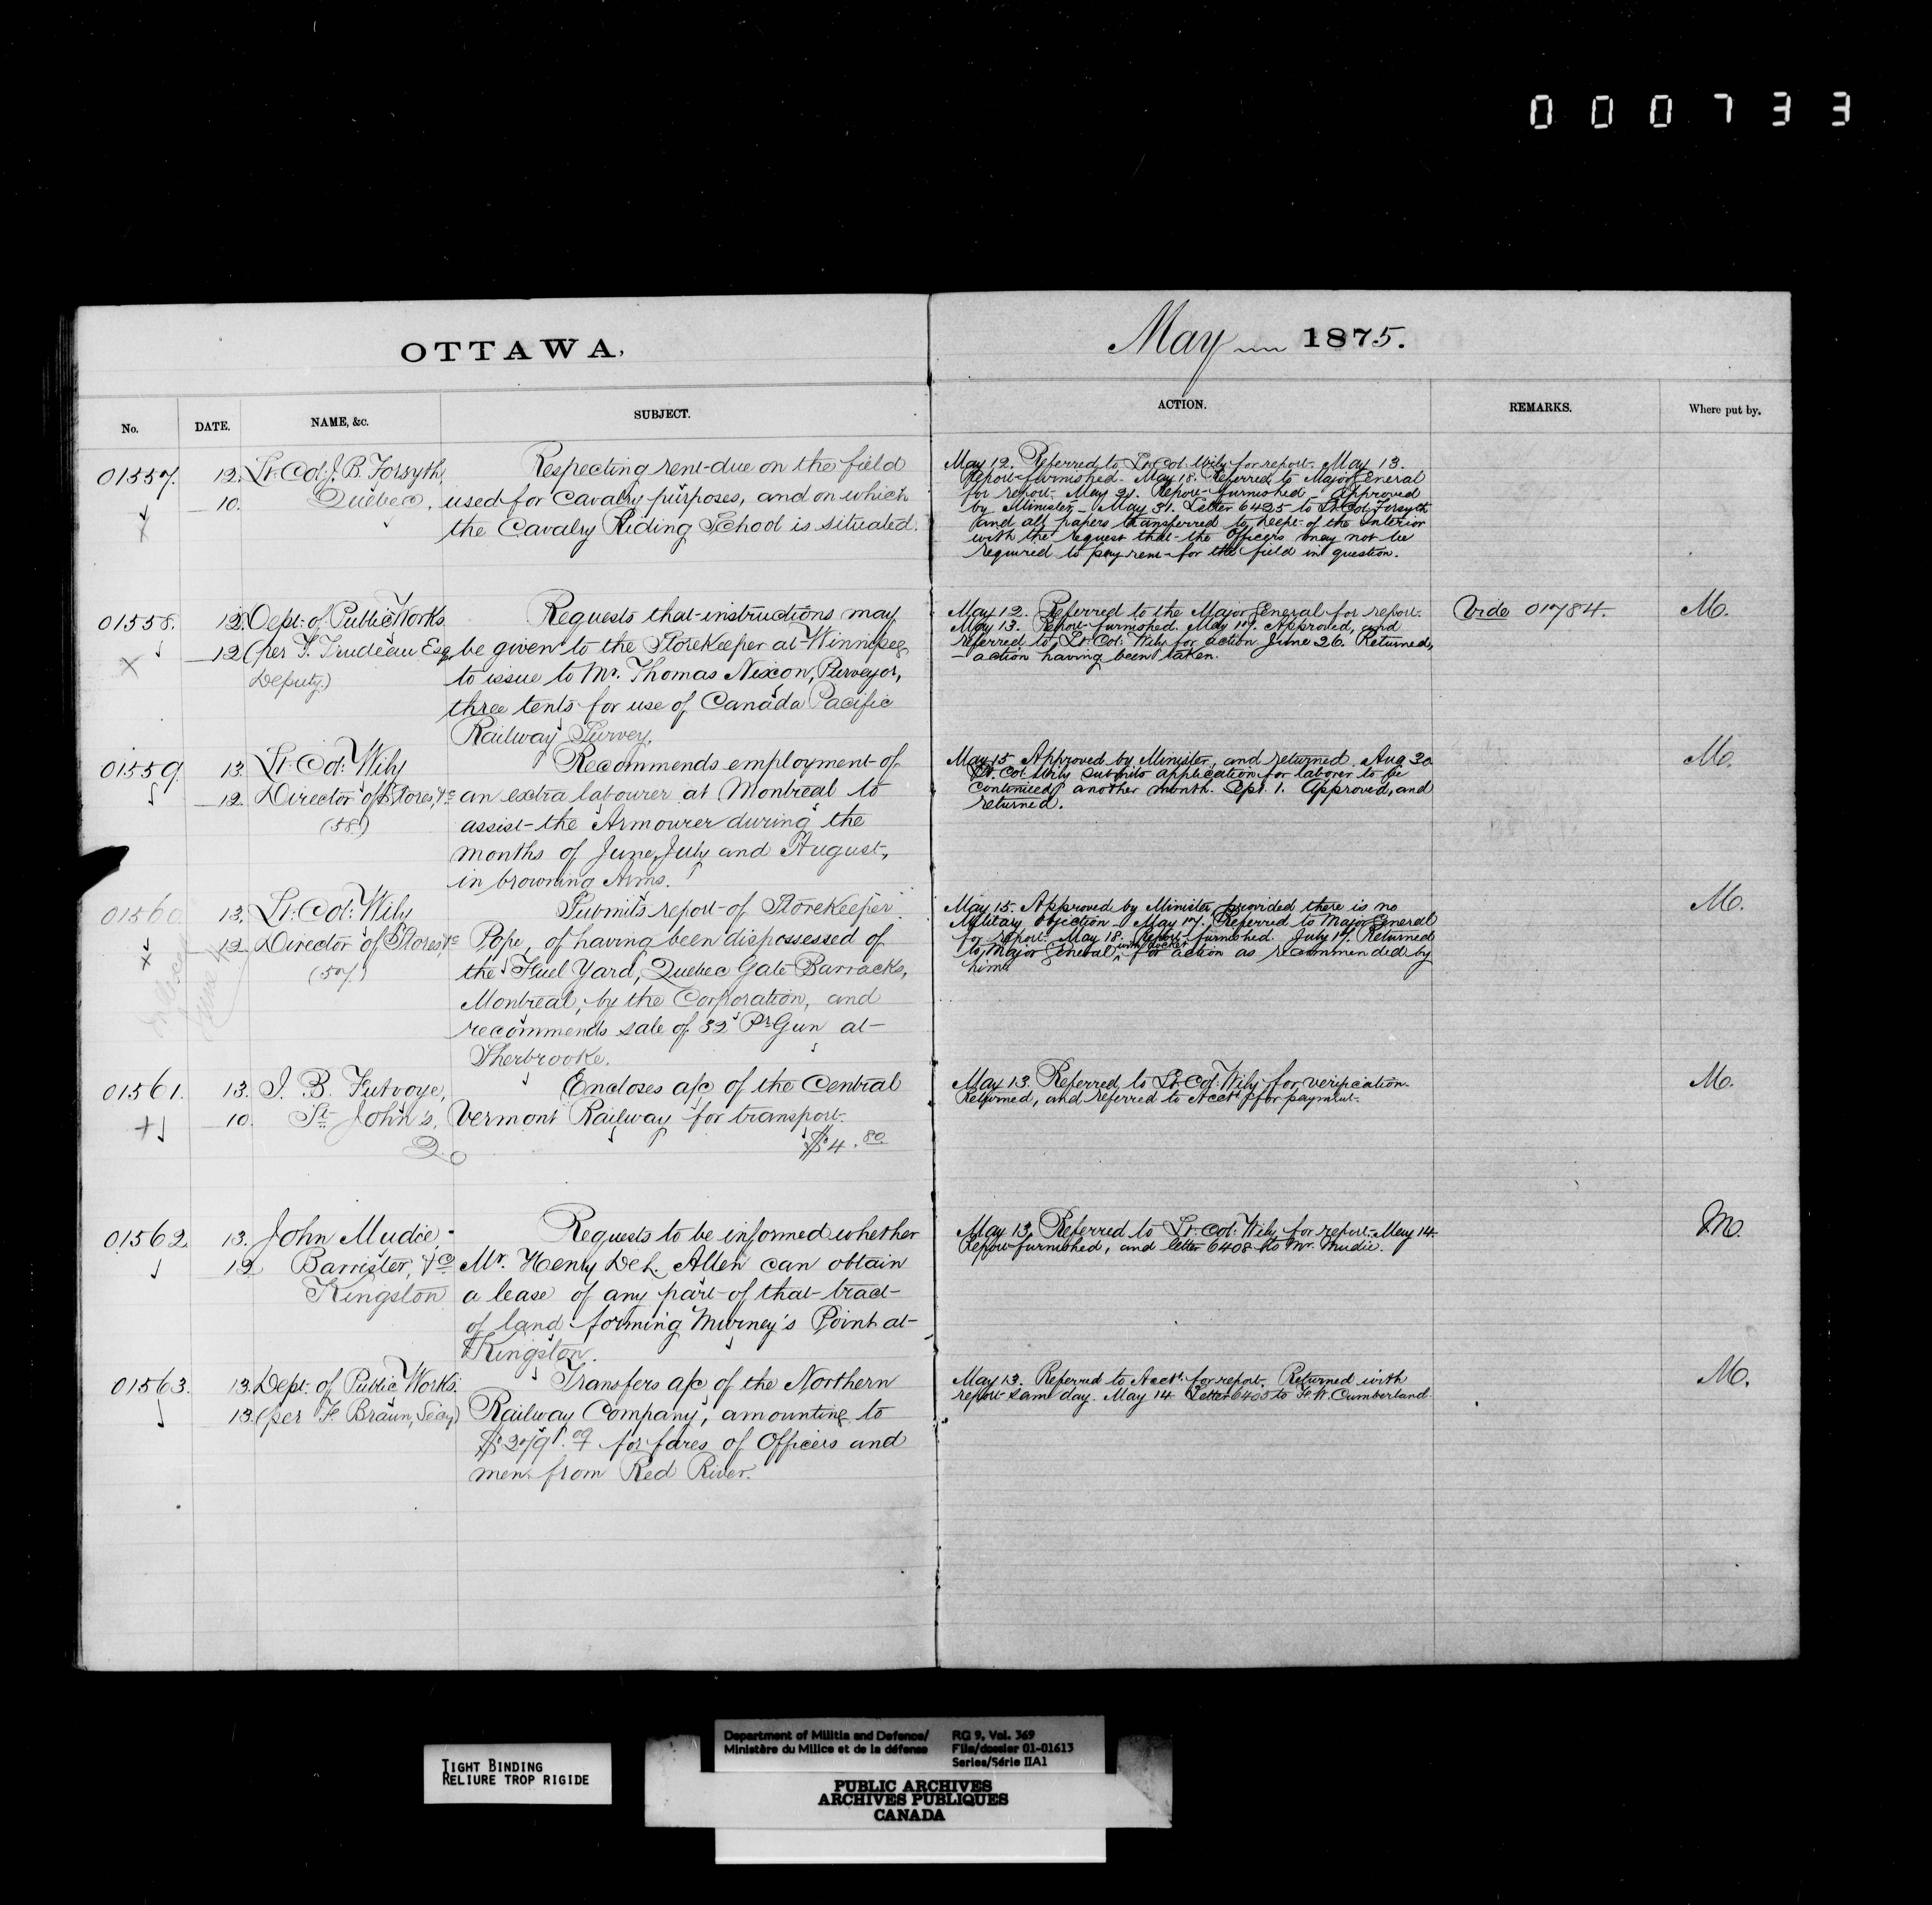 000733
OTTAWA,
May 1875.
No. DATE. NAME, &c. SUBJECT. ACTION. REMARKS. Where put by.
01557. 12. Lt. Col: J. B. Forsyth,
10. Quebec.
Respecting rent due on the field
used for Cavalry purposes, and on which
the Cavalry Riding School is situated.
May 12. Referred to Lt. Col: Wily for report. May 13.
Report furnished. May 18. Referred to Major General
for report. May 21. Report furnished. Approved
by Minister. May 31. Letter 6425 to Lt. Col: Forsyth
and all papers transferred to Dept. of the Interior
with the request that the Officers may not be
required to pay rent for the field in question.
01558. 12. Dept. of Public Works
12 (per T. Trudeau Esq.
Deputy.)
Requests that instructions may
be given to the Storekeeper at Winnipeg
to issue to Mr. Thomas Nixon, Purveyor,
three tents for use of Canada Pacific
Railway Survey.
May 12. Referred to the Major General for report.
May 13. Report furnished. May 17. Approved, and
referred to Lt. Col: Wily for action June 26. Returned,
action having been taken.
Vide 01784.
M.
01559. 13. Lt. Col: Wily
12. Director of Stores, &c
(58)
Recommends employment of
an extra labourer at Montreal to
assist the Armourer during the
months of June, July and August,
in browning Arms.
May 15 Approved by Minister, and returned. Aug 30
Lt. Col. Wily submits application for laborer to be
continued another month. Sept. 1. Approved, and
returned.
M.
01560. 13. Lt. Col: Wily
12. Director of Stores, &c
(57)
Submits report of Storekeeper
Pope, of having been dispossessed of
the Fuel Yard, Quebec Gate Barracks,
Montreal, by the Corporation, and
recommends sale of 32 Pr. Gun at
Sherbrooke.
May 15. Approved by Minister provided there is no
Military objection. May 17. Referred to Major General
for report. May 18. Report furnished. July 17. Returned
to Major General, for action as recommended by
him.
M.
01561. 13. J. B. Futvoye,
10. St. John's,
Q.
Encloses a/c of the Central
Vermont Railway for transport.
$4.80
May 13. Referred to Lt. Col. Wily for verification.
Returned, and referred to Acct. for payment.
M.
01562. 13. John Mudie
12 Barrister, &c
Kingston
Requests to be informed whether
Mr. Henry Allen can obtain
a lease of any part of that tract
of land forming Murney's Point at
Kingston.
May 13. Referred to Lt. Col: Wily for report. May 14.
Report furnished, and letter 6408 to Mr. Mudie.
M.
01563. 13. Dept. of Public Works.
13. (per F. Braun, Secy)
Transfers a/c of the Northern
Railway Company, amounting to
for fares of Officers and
men from Red River.
May 13. Referred to Acct. for report. Returned with
report same day. May 14 Letter 6405 to F. W. Cumberland.
M.
TIGHT BINDING
RELIURE TROP RIGIDE
Department of Militia and Defence/
Ministère du Milice et de la défense
RG 9, Vol. 369
File/dossier 01-01613
Series/Série IIA1
PUBLIC ARCHIVES
ARCHIVES PUBLIQUES
CANADA